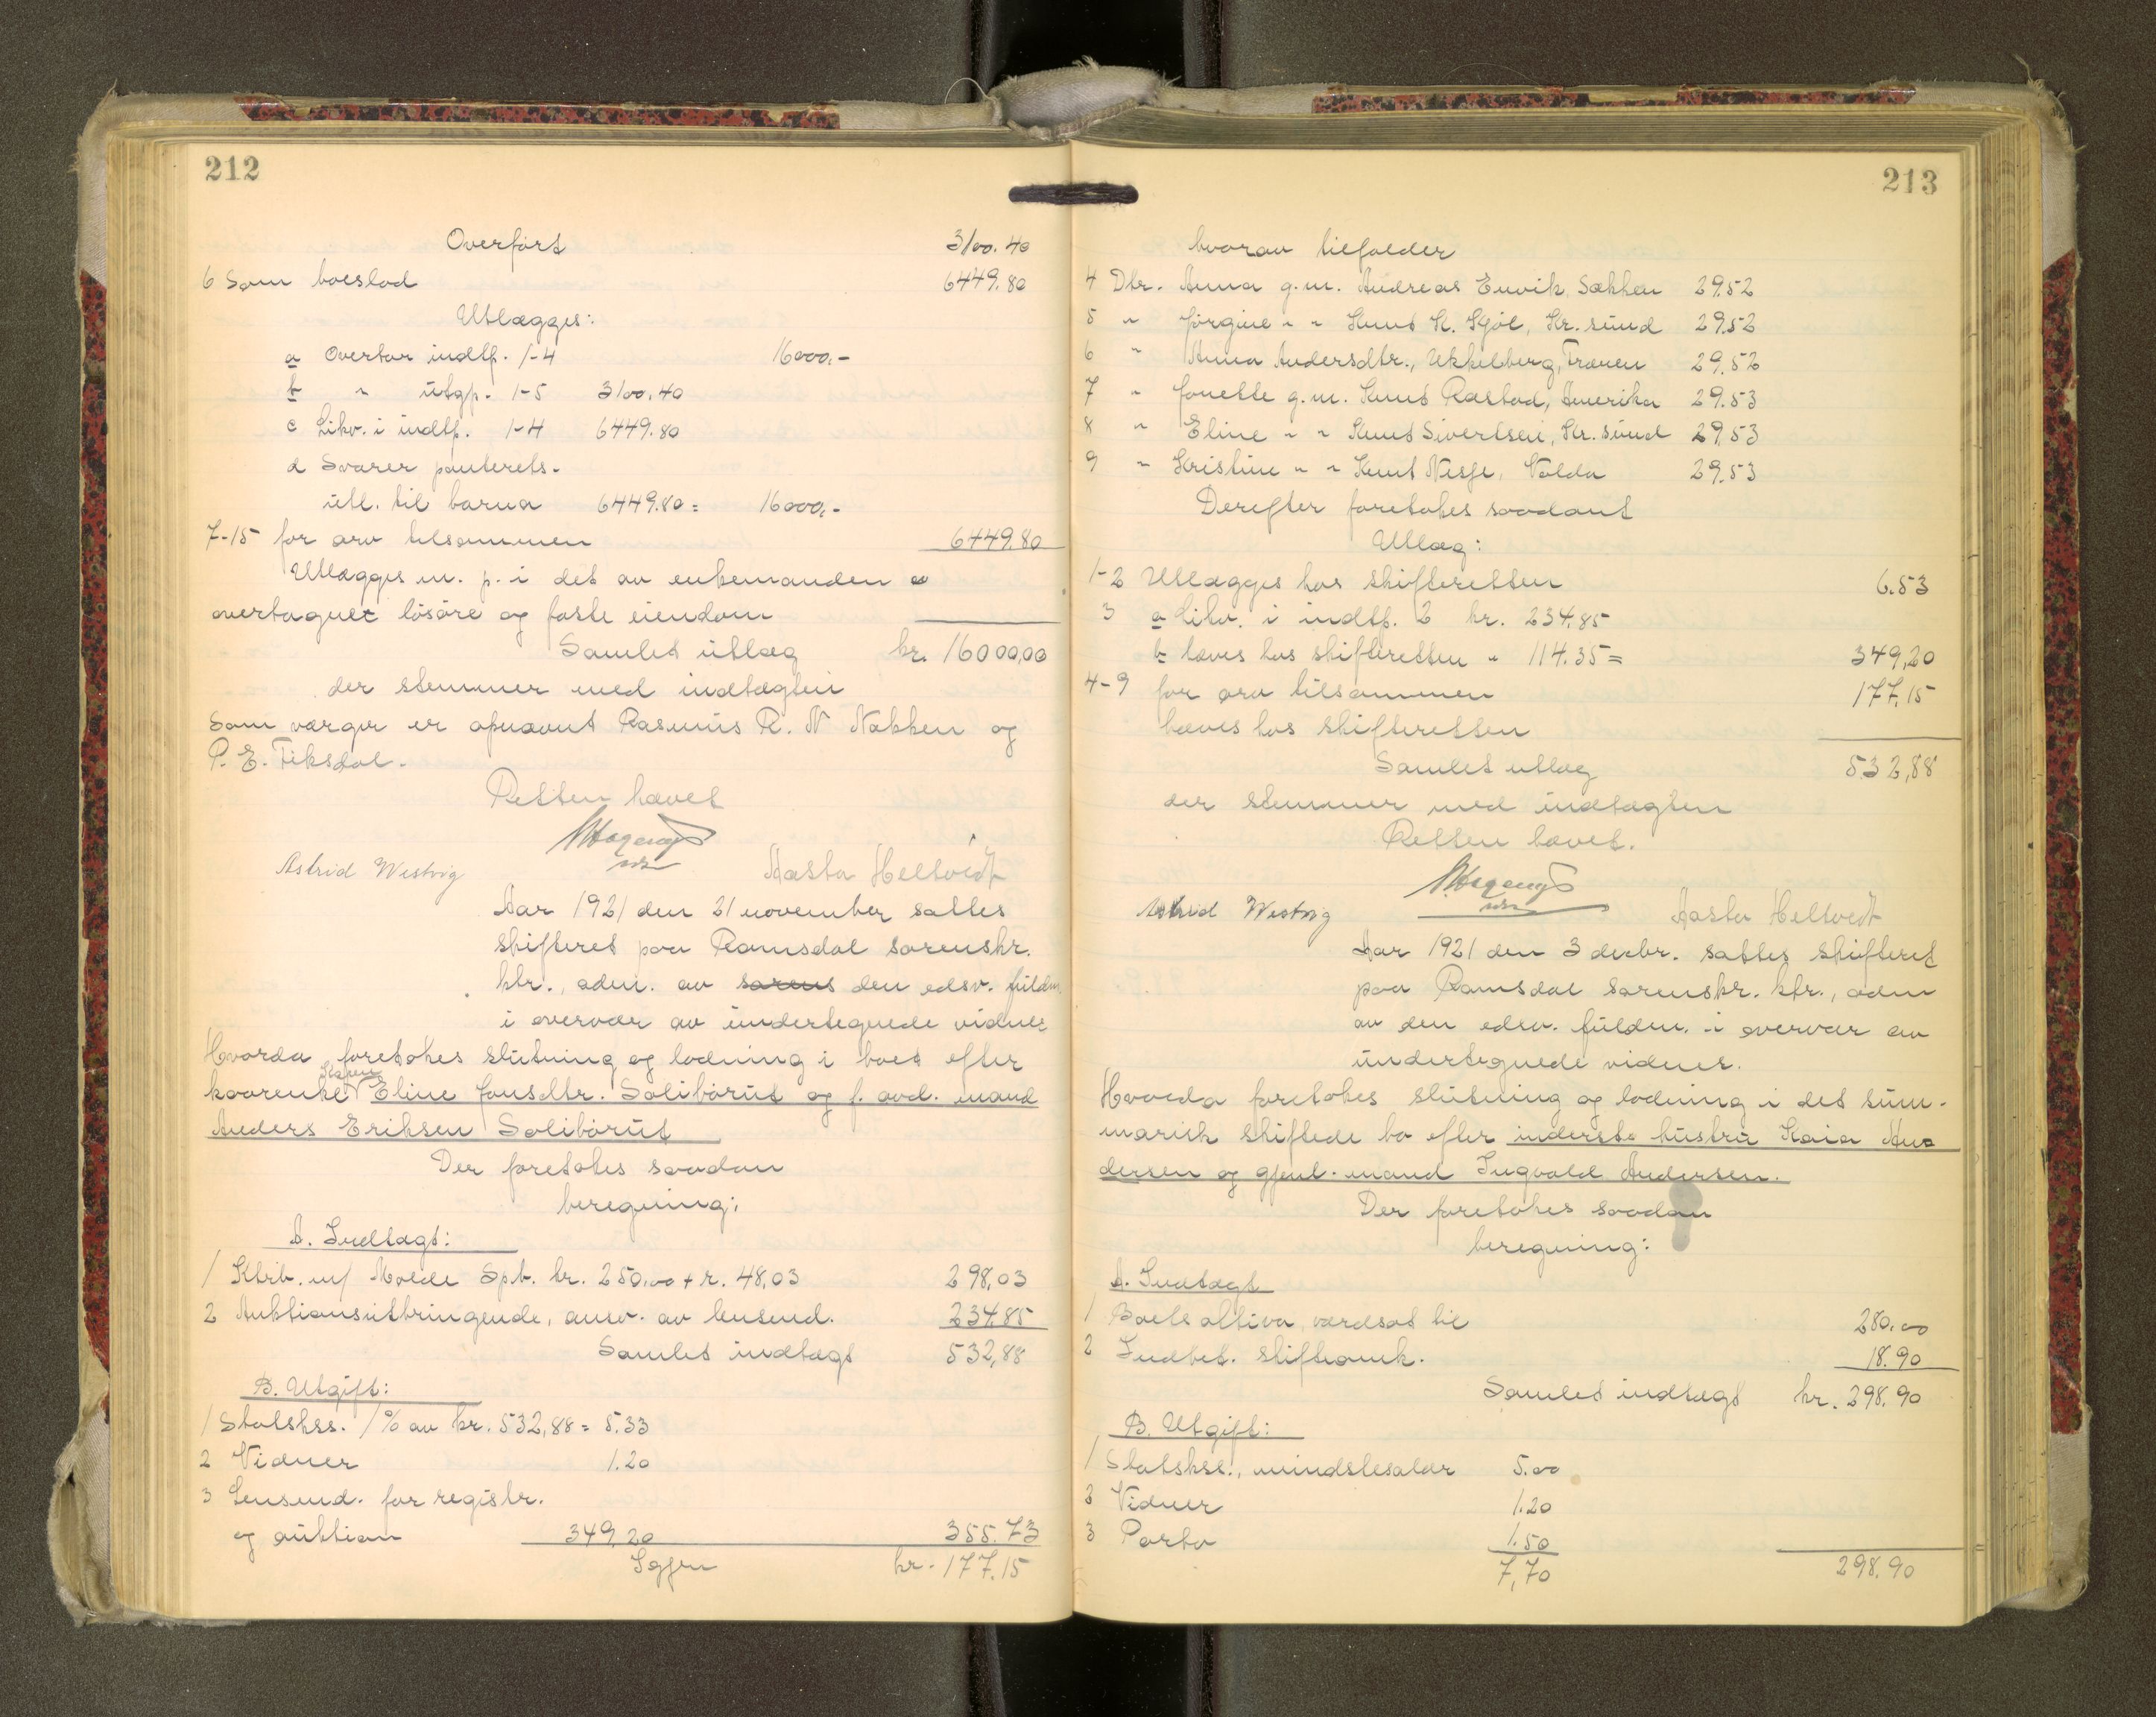 212
Overført 3100.40
6 Som boeslod 6449.80
Utlægges:
a Overtar indtp. 1-4 16000,-
b " utgp. 1-5 3100.40
c Likv. i indtp. 1-4 6449.80
d Svarer panterets-
utl. til barna 6449.80 = 16000,-
7-15 for arv tilsammen 6449,80
Utlægges m. p. i det av enkemanden
overtagnet løsøre og faste eiendom
Samlet utlæg kr. 16000,00
der stemmer med indtægten
Som værger er opnævnt Rasmus R. N Nakken og
P. E. Fiksdal.
Retten hævet
Astrid Westvig Aasta Heltvedt
Aar 1921 den 21 november sattes
skifteret paa Romsdal sorenskr.
ktr., adm. av sorens den edsv. fuldm.
i overvær av undertegnede vidner
Hvorda foretokes slutning og lodning i boet efter
kaarenke Eline Jonsdtr. Solibørut og f. avd. mand
Anders Eriksen Solibørut
Der foretokes saadan
beregning:
A. Indtægt:
1 Ktrb. m/ Molde Spb. kr. 250,00 + r. 48,03 298,03
2 Auktionsutbringende, ansv. av lensmd. 234.85
Samlet indtægt 532,88
B. Utgift:
1 Statskss. 1% av kr. 532,88 = 5.33
2 Vidner 1.20
3 Lensmd. for registr.
og auktion 349,20 355.73
Igjen kr. 177.15
213
hvorav tilfalder
4 Dtr. Anna g.m. Andreas Envik, Sækken 29.52
5 " Jørgine " " Knut K. Skjøl, Kr. sund 29.52
6 " Anna Andersdtr., Ukkelberg, Frænen 29.52
7 " Jonette g.m. Knut Røstad, Amerika 29.53
8 " Eline " " Knut Sivertsen, Kr. sund 29.53
9 " Kristine " " Knut Nesje, Volda 29.53
Derefter foretokes saadant
Utlæg:
1-2 Utlægges hos skifteretten 6.53
3 a Likv. i indtp. 2 kr. 234.85
b hæves hos skifteretten " 114.35 = 349,20
4-9 for arv tilsammen 177.15
hæves hos skifteretten
Samlet utlæg 532,88
der stemmer med indtægten
Retten hævet.
Astrid Westvig Aasta Heltvedt
Aar 1921 den 3 decbr. sattes skifteret
paa Romsdal sorenskr. ktr., adm
av den edsv. fuldm. i overvær av
undertegnede vidner.
Hvorda foretokes slutning og lodning i det sum-
marisk skiftede bo efter inderste hustru Kaia An-
dersen og gjenl. mand Ingvald Andersen.
Der foretokes saadan
beregning:
A. Indtægt
1 Boets aktiva, værdsat til 280.00
2 Indbet. skifteomk. 18.90
Samlet indtægt kr. 298.90
B. Utgift:
1 Statskss., mindstesalær 5.00
2 Vidner 1.20
3 Porto 1.50
7,70 298.90